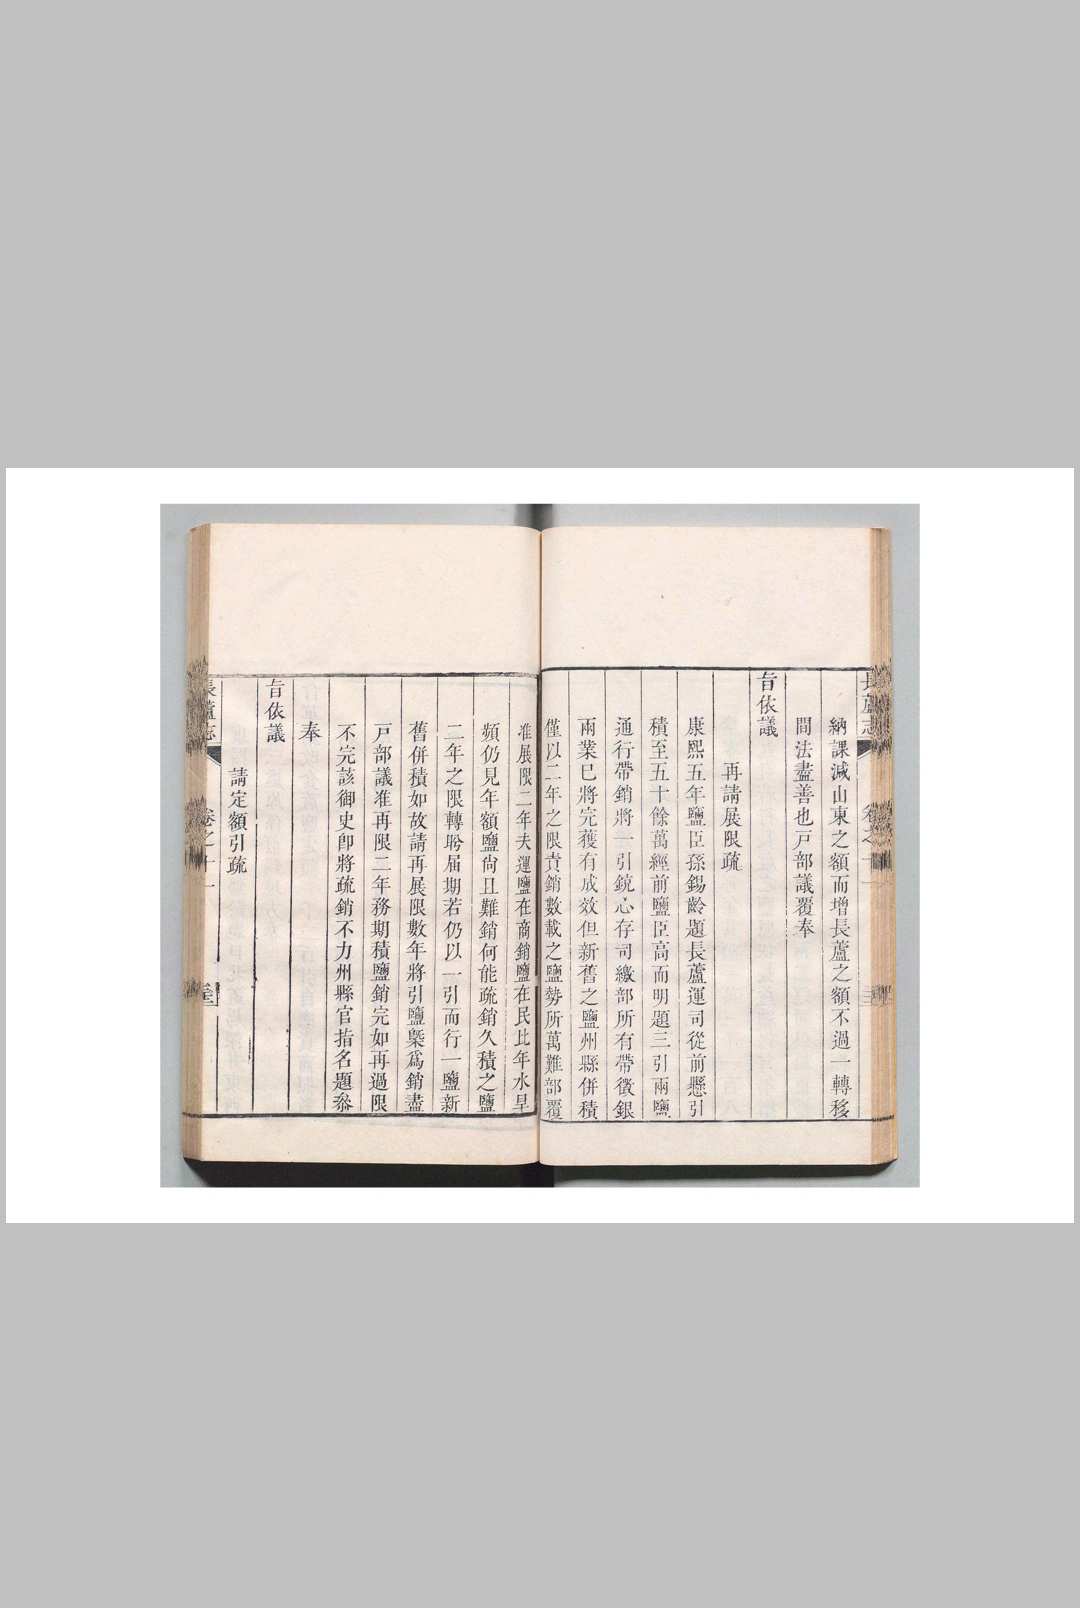 長蘆志
卷之十
納課減山東之額而增長蘆之額不過一轉移
間法盡善也戸部議覆奉
旨依議
再請展限疏
康熙五年鹽臣孫錫齡題長蘆運司從前懸引
積至五十餘萬經前鹽臣高而明題三引兩鹽
通行帶銷將一引鏡心存司繳部所有帶徵銀
兩業巳將完獲有成效但新舊之鹽州縣併積
僅以二年之限責銷數載之鹽勢所萬難部覆
准展限二年夫運鹽在商銷鹽在民比年水旱
頻仍見年額鹽尚且難銷何能疏銷久積之鹽
二年之限轉盻届期若仍以一引而行一鹽新
舊併積如故請再展限數年將引鹽槩爲銷盡
戸部議准再限二年務期積鹽銷完如再過限
不完該御史卽將疏銷不力州縣官指名題叅
奉
旨依議
請定額引疏
長蘆志
卷之十一